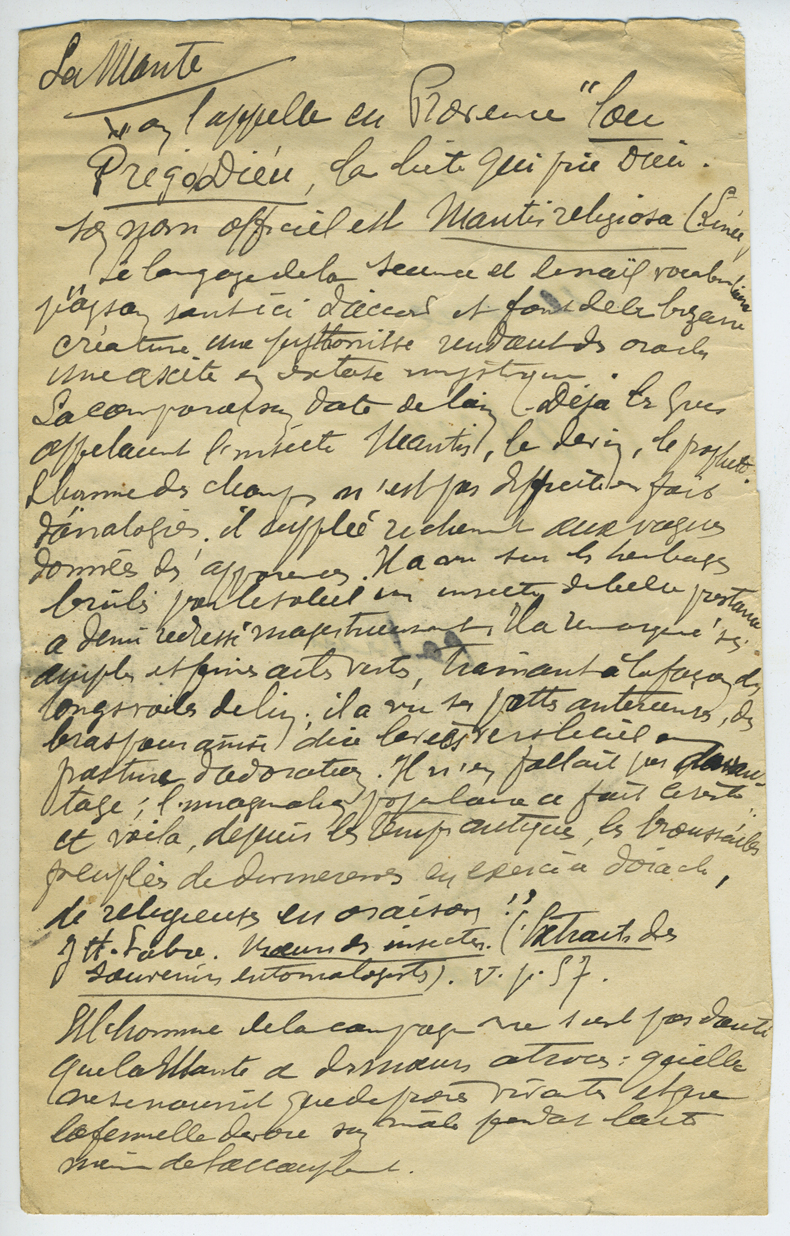 La Mante
"on l'appelle en Provence "lou
Prègo Diéu, la bête qui prie Dieu.
son nom officiel est Mantis religiosa (Linée
le langage de la science et le naïf vocabulaire
paysan sont ici d'accord et font de la bizarre
créature une pythonisse rendant des oracles
une ascète en extase mystique.
La comparaison date de loin (Déjà les Grecs
appelaient l'insecte Mantis, le devin, le prophète.
L'homme des champs n'est pas difficile en fait
d'analogies. il supplée richement aux vagues
données des apparences. Il a vu sur les herbages
brulés par le soleil un insecte de belle prestance
à demi redressé majestueusement. Il a remarqué ses
amples et fines ailes vertes, trainant à la façon de
longs voiles de lin ; il a vu ses pattes antérieures, des
bras pour ainsi dire levées vers le ciel en
posture d'adoration. Il n'en fallait pas davan-
tage ; l'imagination populaire a fait le reste..
et voila, depuis les temps antique, les broussailles
peuplées de devineresses en exercice d'oracle,
de religieuses en oraison !"
J H. Fabre. Mœurs des insectes. (Extraits des
souvenirs entomologists). v. p. 57.
L'homme de la campagne ne s'est pas douté
que la Mante a des mœurs atroces : qu'elle
ne se nourrit que de proies vivantes et que
la femelle dévore son mâle pendant l'acte
même de l'accouplement.